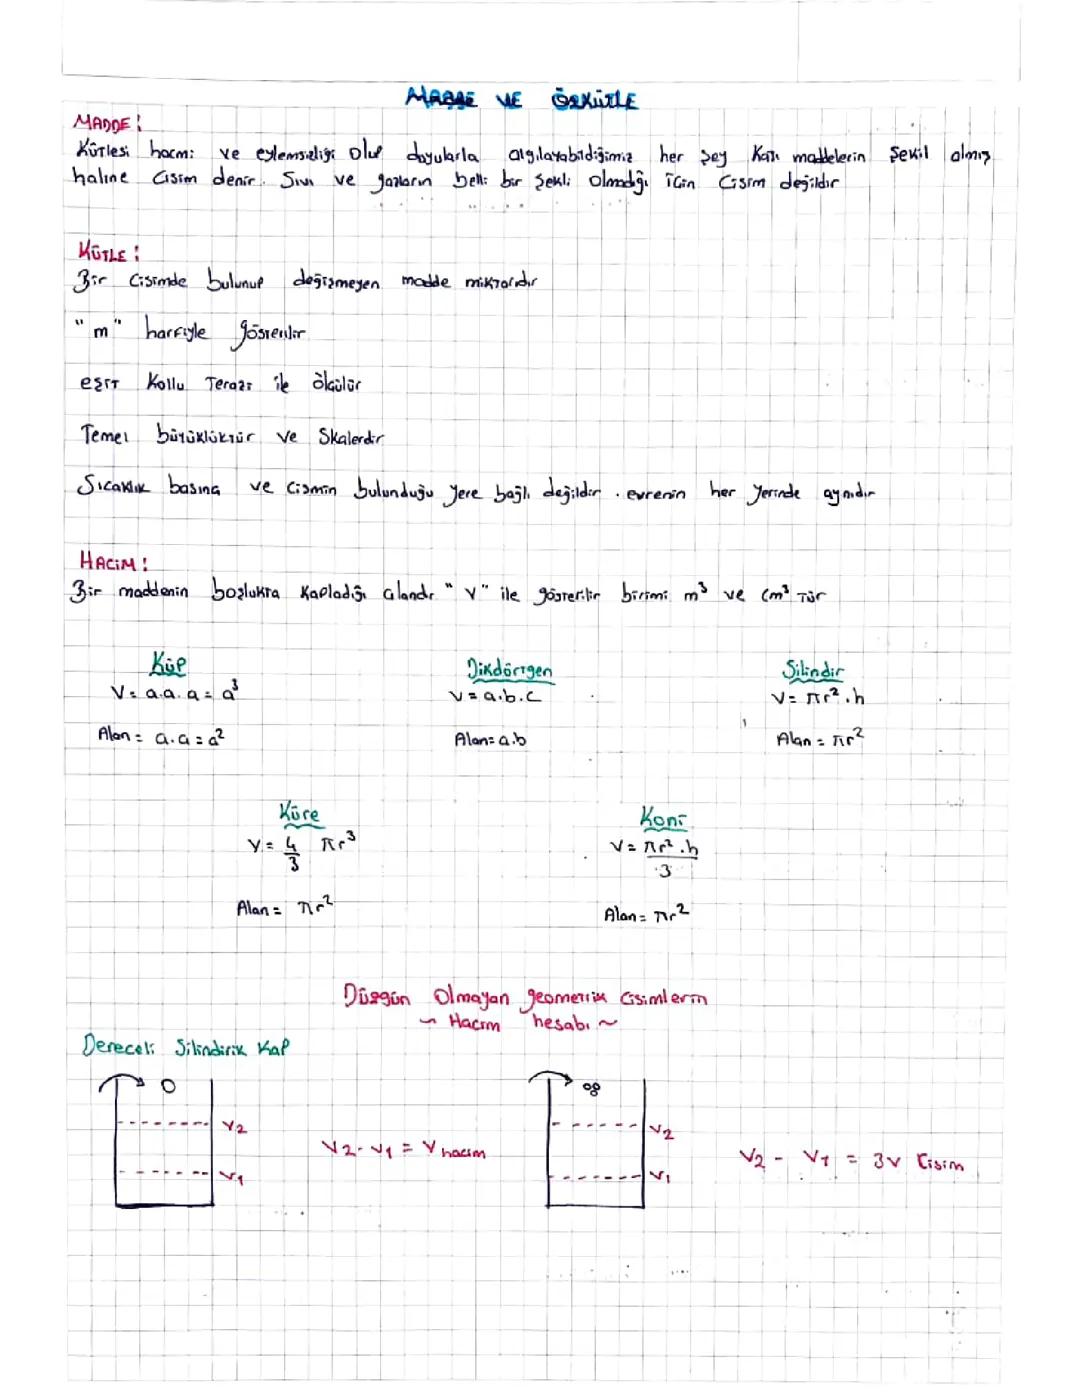 MADDE VE ÖZKÜTLE
MADDE:
Kütlesi hacmi ve eylemsizliği olup duyularla algılayabildiğimiz her şey Katı maddelerin Şekil almış
haline cisim denir. Sıvı ve gazların belli bir şekli olmadığı için cisim değildir
KÜTLE:
Bir cisimde bulunup değişmeyen madde miktarıdır
"m" harfiyle gösterilir
eşit kollu Terazi ile ölçülür
Temel büyüklüktür ve Skalerdir
Sıcaklık basınç ve cismin bulunduğu yere bağlı değildir. evrenin her yerinde aynıdır
HACİM:
Bir maddenin boşlukta kapladığı alandır "V" ile gösterilir birimi m³ ve cm³ tür
Küp Dikdörtgen Silindir
V= a.a.a = a³ V = a.b.c V= πr².h
Alan = a.a = a² Alan= a.b Alan = πr²
Küre Koni
V= 4/3 πr³ V= πr².h/3
Alan = πr² Alan = πr²
Düzgün Olmayan geometrik cisimlerin
~ Hacim hesabı ~
Dereceli Silindirik Kap
V2 V2
V2-V1 = V hacim V2 - V1 = 3V Cisim
V1 V1